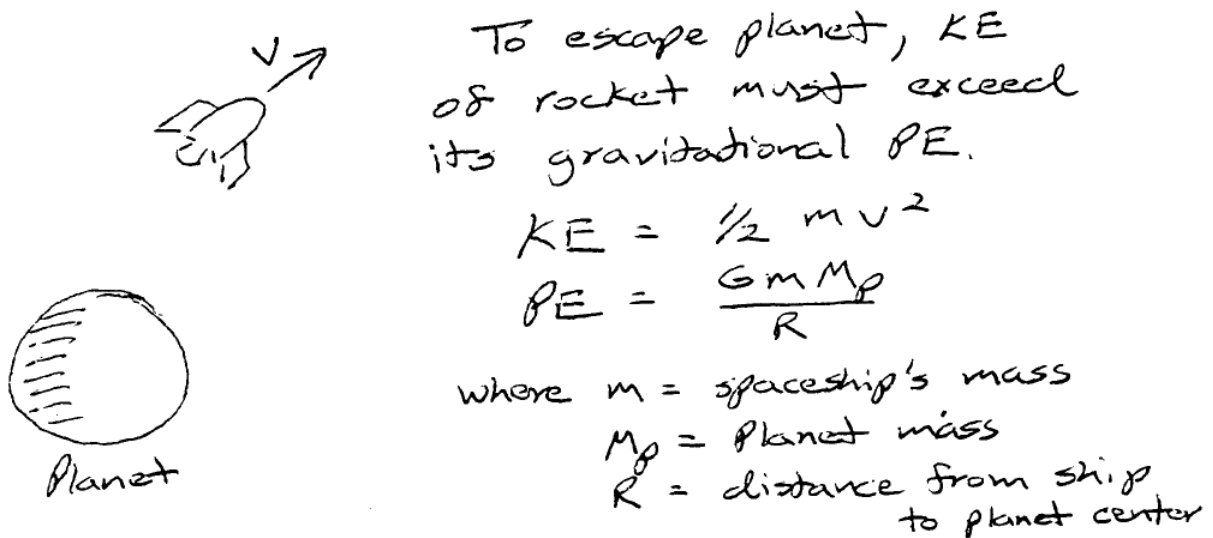 V
To escape planet, KE
of rocket must exceed
its gravitational PE.
KE = 1/2 mv²
PE = GmMp/R
where m = spaceship's mass
Mp = Planet mass
R = distance from ship
to planet center
Planet